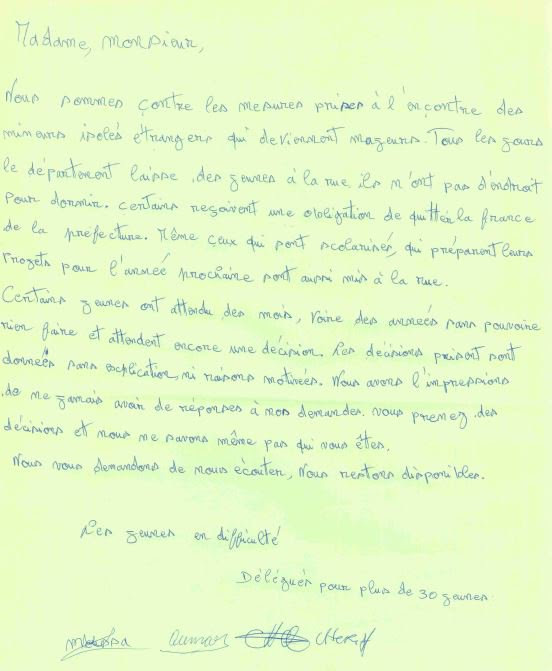 Madame, Monsieur,
Nous sommes contre les mesures prises à l'encontre des
mineurs isolés étrangers qui deviennent mageurs. Tous les gours
le département laisse des geunes à la rue ils n'ont pas d'endroit
pour dormir. Certains reçoivent une obligation de quitter la france
de la prefecture. Même ceux qui sont scolarisés, qui préparent leurs
Projets pour l'année prochaine sont aussi mis à la rue.
Certains geunes ont attendu des mois, voire des années sans pouvoire
rien faire et attendent encore une décision. Les décisions prisent sont
données sans explication, ni raisons motivées. Nous avons l'impressions
de ne gamais avoir de réponses à nos demandes. vous prenez des
décisions et nous ne savons même pas qui vous êtes.
Nous vous demandons de nous écouter, Nous restons disponibles.
Les geunes en difficulté
Délégués pour plus de 30 geunes.
Oumar Cherif